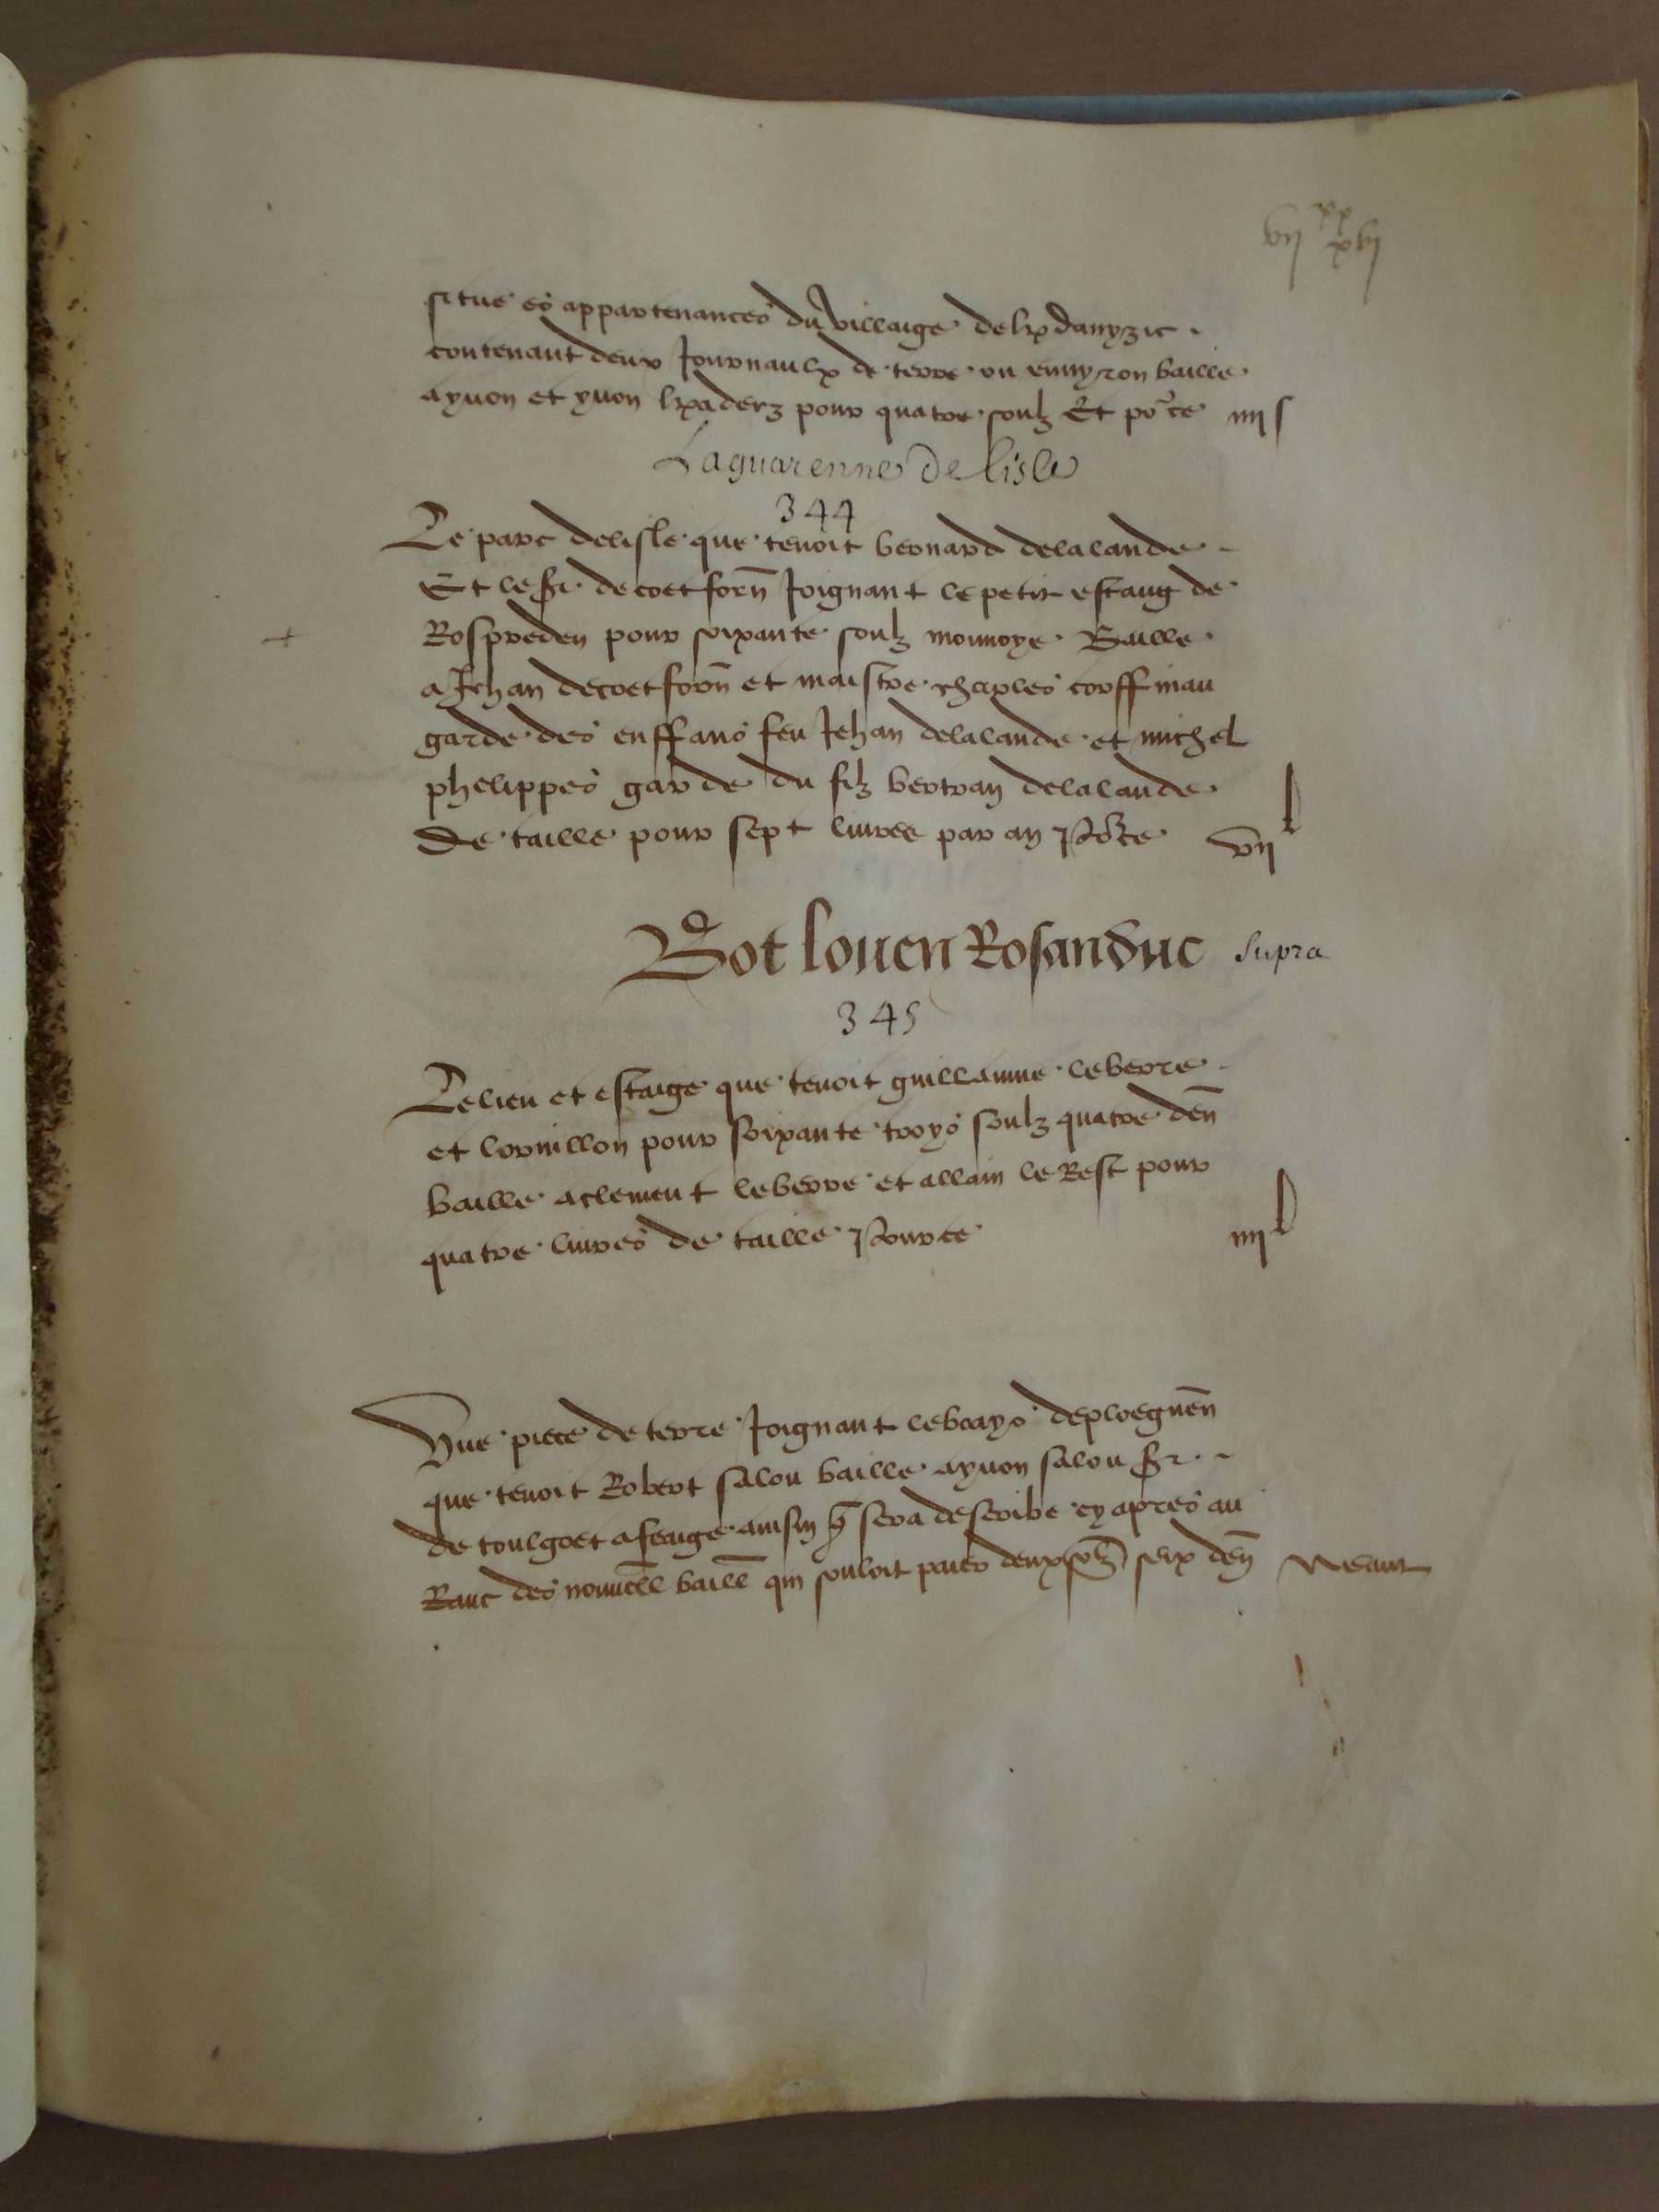 vii xx xvi
situe es appartenances du villaige de kerdanyzic
contenant deux Journaulx de terre ou envyron baille
a yvon et yvon kaderz pour quatre soulz Et po.r ce iiii s
La guarenne de lisle
344
Le parc de lisle que tenoit bernard de la lande
Et le sr de coetforn Joignant le petit estang de
Rospreden pour soixante soulz monnoye Baille
a Jehan de coetforn et maistre charles coeffmau
garde des enffans feu Jehan de la lande et michel
phelippes garde du filz bertran de la lande
de taille pour sept livres par an Po.r ce vii l
Bot louen Rosanduc supra
345
Le lieu et estaige que tenoit guillaume le berre
et Cornillon pour soixante troys soulz quatre den
baille a clement le berre et allain le Rest pour
quatre livres de taille Pour ce iiii l
Une piece de terre Joignant le bays de ploeguen
que tenoit Robert salou baille a yvon salou sr
de toulgoet a feaige ainsin q sera describe cy apres au
Ranc des nouvell baill qui souloit paier deux solz seix den Neant